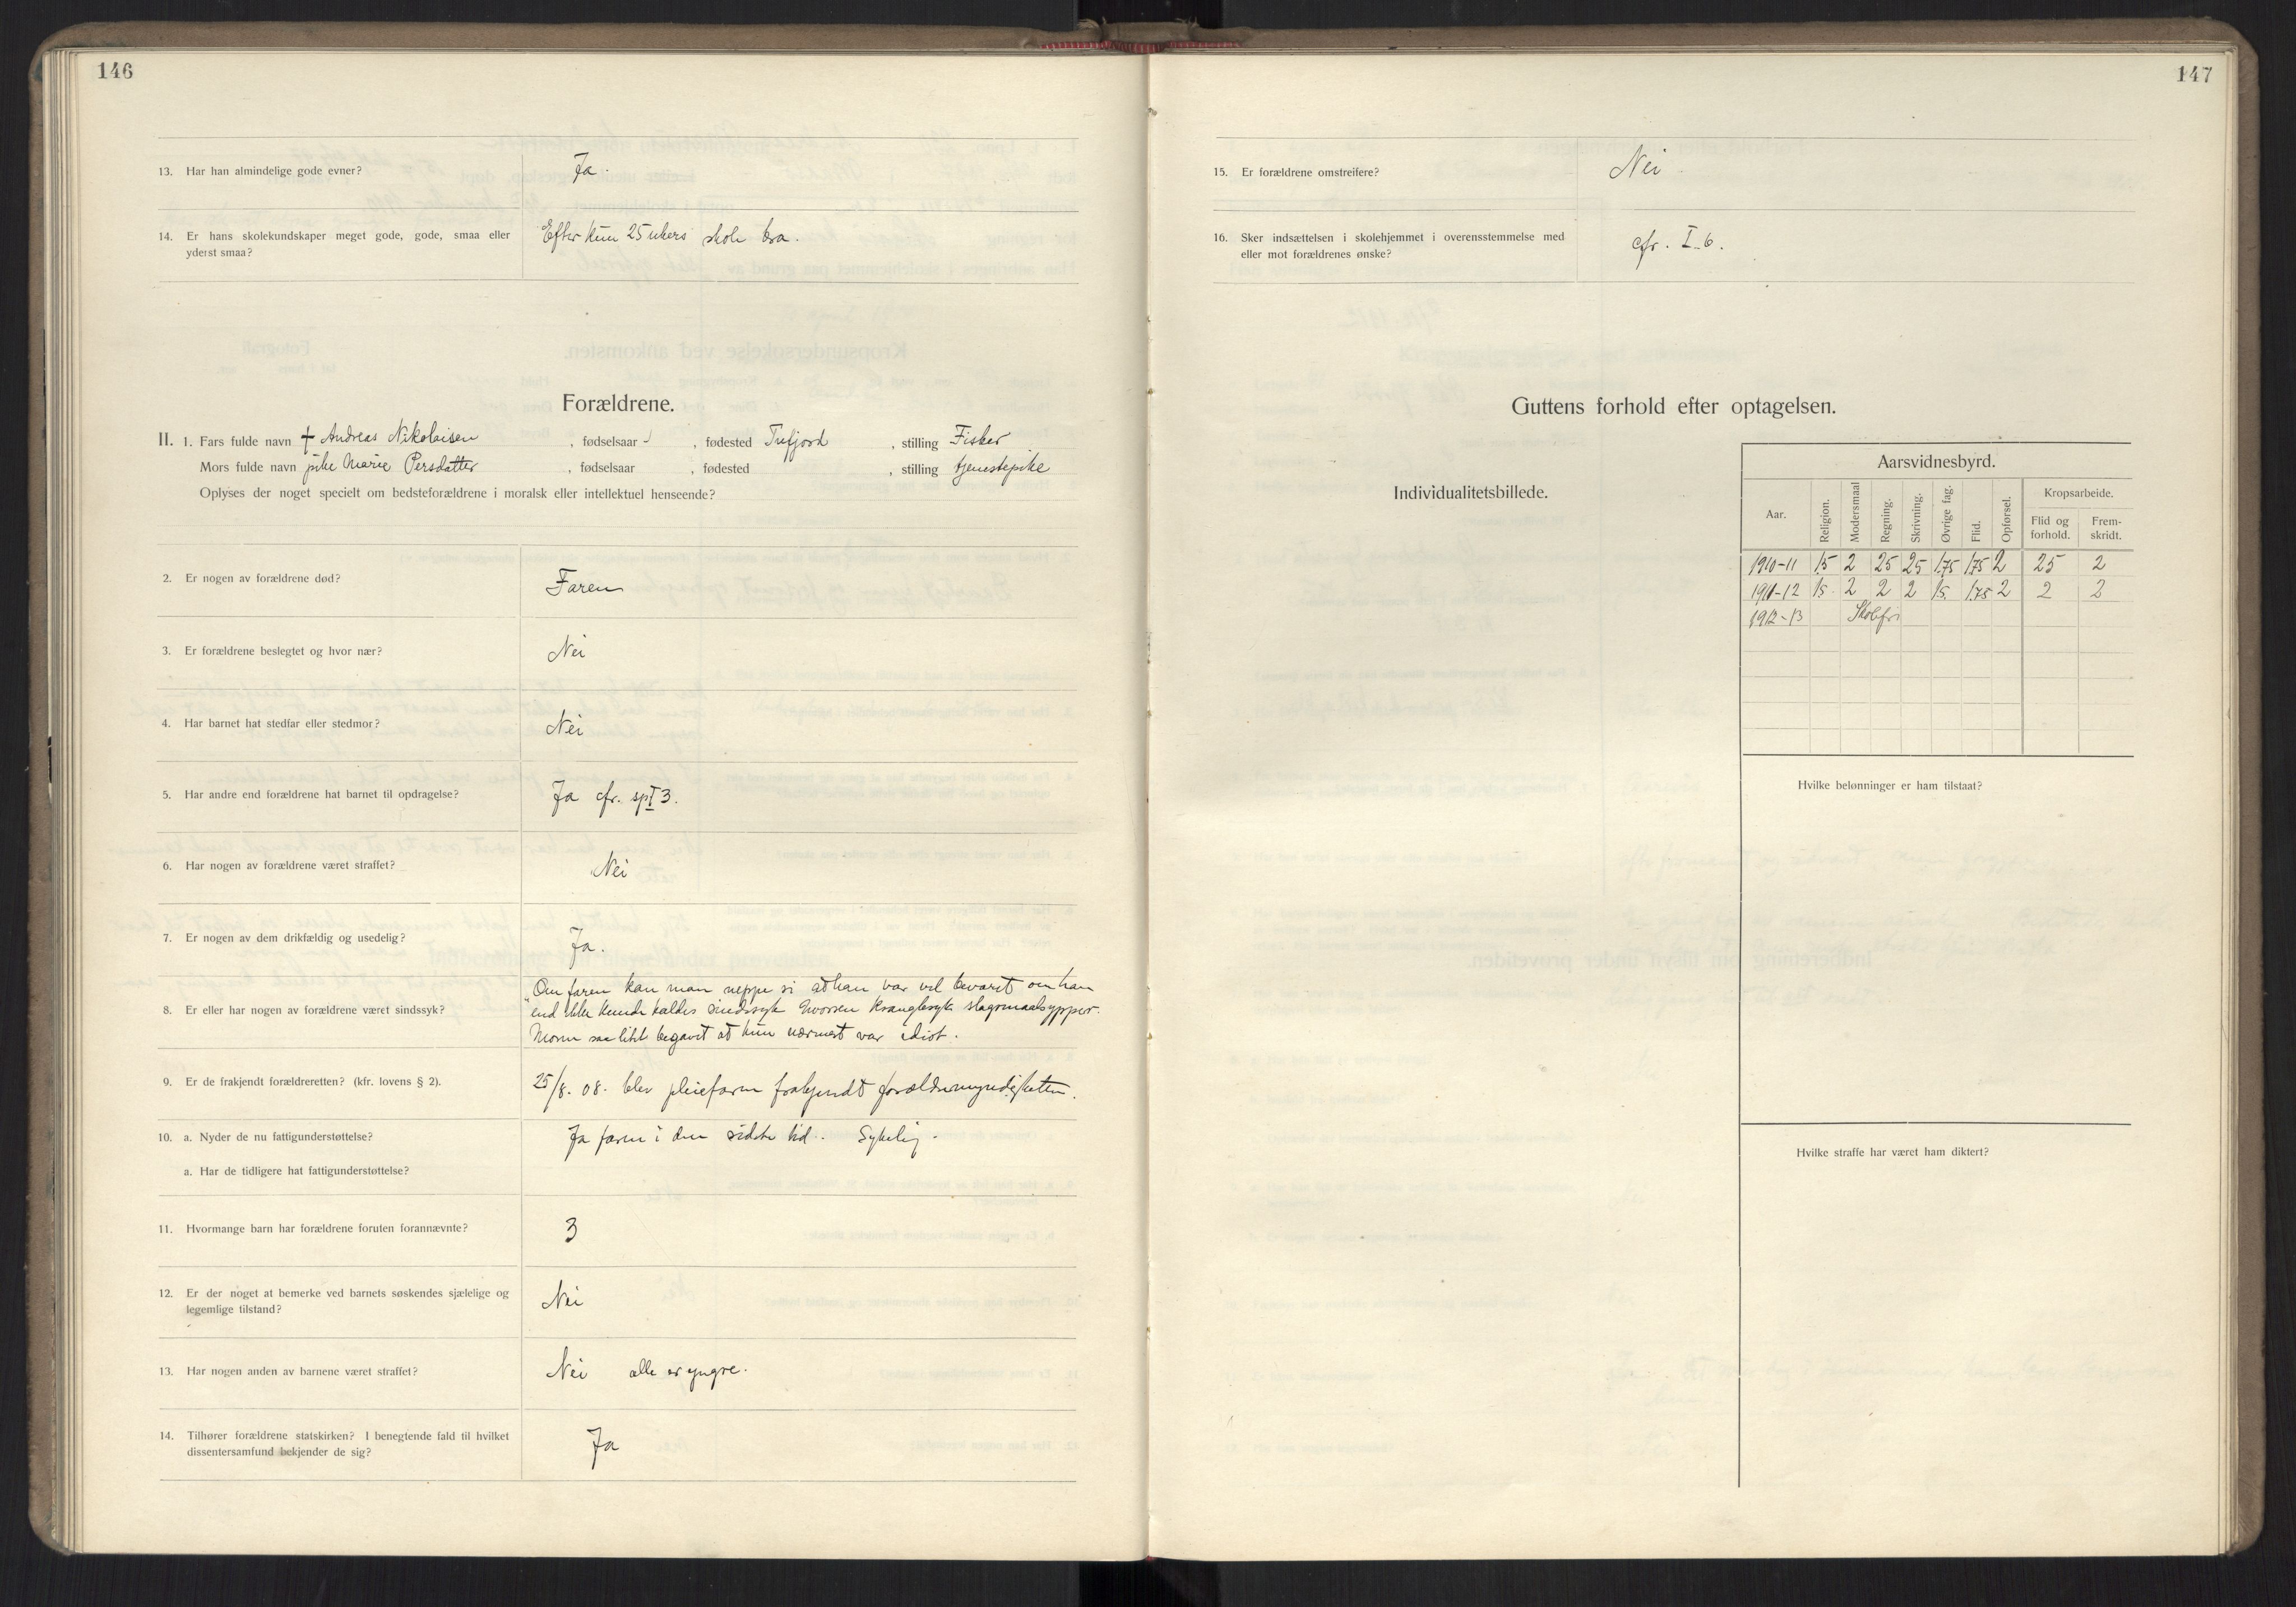 146
13. Har han almindelige gode evner? Ja.
14. Er hans skolekundskaper meget gode, gode, smaa eller
yderst smaa? Efter kun 25 ukers skole bra.
Forældrene.
II. 1. Fars fulde navn + Andreas Nikolaisen, fødselsaar, fødested Tufjord, stilling Fisker
Mors fulde navn pike Marie Persdatter, fødselsaar, fødested, stilling tjenestepike
Oplyses der noget specielt om bedsteforældrene i moralsk eller intellektuel henseende?
2. Er nogen av forældrene død? Faren
3. Er forældrene beslegtet og hvor nær? Nei
4. Har barnet hat stedfar eller stedmor? Nei
5. Har andre end forældrene hat barnet til opdragelse? Ja cfr. sp I 3.
6. Har nogen av forældrene været straffet? Nei
7. Er nogen av dem drikfældig og usedelig? Ja.
8. Er eller har nogen av forældrene været sindssyk?
"Om faren kan man neppe si at han var vel bevaret om han
end ikke kunde kaldes sindssyk kranglesyk slagsmaalsypper.
Moren saa litet begavet at hun nærmest var idiot.
9. Er de frakjendt forældreretten? (kfr. lovens § 2). 25/8. 08. blev pleiefaren frakjendt forældremyndigheten.
10. a. Nyder de nu fattigunderstøttelse? Ja faren i den sidste tid. Sykelig.
a. Har de tidligere hat fattigunderstøttelse?
11. Hvormange barn har forældrene foruten forannævnte? 3
12. Er der noget at bemerke ved barnets søskendes sjælelige og
legemlige tilstand? Nei
13. Har nogen anden av barnene været straffet? Nei alle er yngre.
14. Tilhører forældrene statskirken? I benegtende fald til hvilket
dissentersamfund bekjender de sig? Ja
147
15. Er forældrene omstreifere? Nei.
16. Sker indsættelsen i skolehjemmet i overensstemmelse med
eller mot forældrenes ønske? cfr. I. 6.
Guttens forhold efter optagelsen.
Individualitetsbillede.
Aarsvidnesbyrd.
Aar. Religion. Modersmaal Regning. Skrivning. Øvrige fag. Flid. Opførsel. Kropsarbeide.
Flid og forhold. Fremskridt.
1910-11 1.5 2 25 25 1.75 1.75 2 25 2
1911-12 1.5 2 2 2 1.5 1.75 2 2 2
1912-13 Skolefri
Hvilke belønninger er ham tilstaat?
Hvilke straffe har været ham diktert?